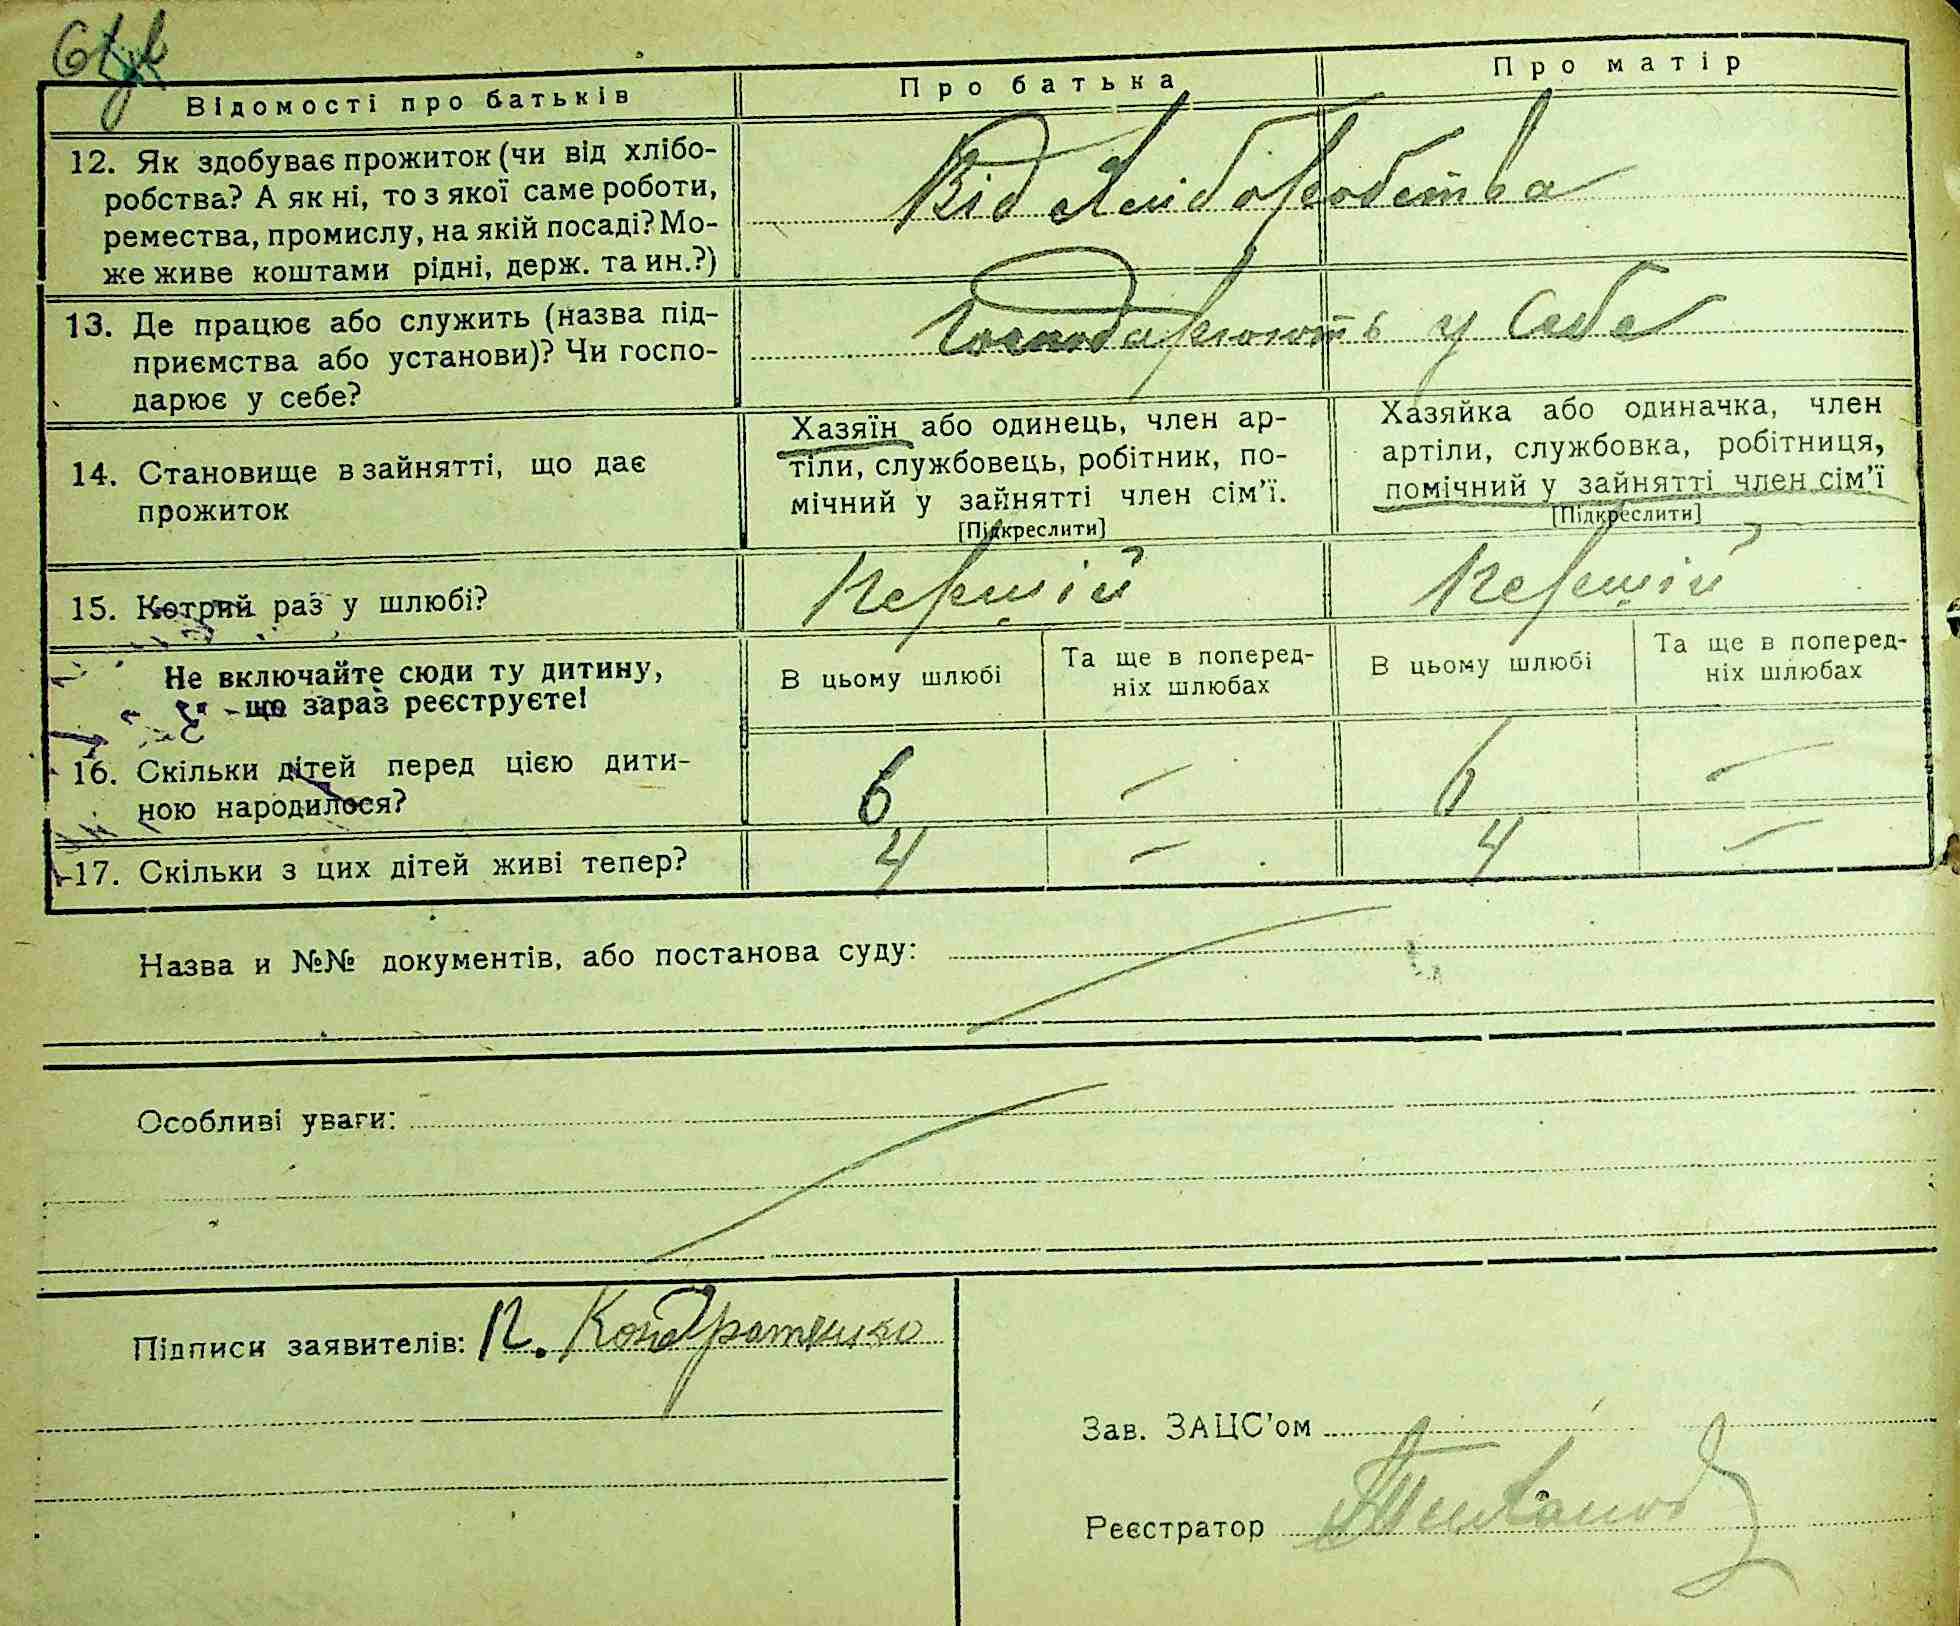 Відомості про батьків
Про батька
Про матір
12. Як здобуває прожиток (чи від хлібо-
робства? А як ні, то з якої саме роботи,
ремества, промислу, на якій посаді? Мо-
же живе коштами рідні, держ. та ин.?)
Від хліборобства
13. Де працює або служить (назва під-
приємства або установи)? Чи госпо-
дарює у себе?
Господарюють у себе
14. Становище в зайнятті, що дає
прожиток
Хазяїн або одинець, член ар-
тіли, службовець, робітник, по-
мічний у зайнятті член сім'ї.
[Підкреслити]
Хазяйка або одиначка, член
артіли, службовка, робітниця,
помічний у зайнятті член сім'ї
[Підкреслити]
15. Котрий раз у шлюбі?
Першій
Першій
Не включайте сюди ту дитину,
що зараз реєструєте!
В цьому шлюбі
Та ще в поперед-
ніх шлюбах
В цьому шлюбі
Та ще в поперед-
ніх шлюбах
16. Скільки дітей перед цією дити-
ною народилося?
6 — 6 —
17. Скільки з цих дітей живі тепер?
4 — 4 —
Назва и №№ документів, або постанова суду:
Особливі уваги:
Підписи заявителів: П. Кондратенко
Зав. ЗАЦС'ом
Реєстратор